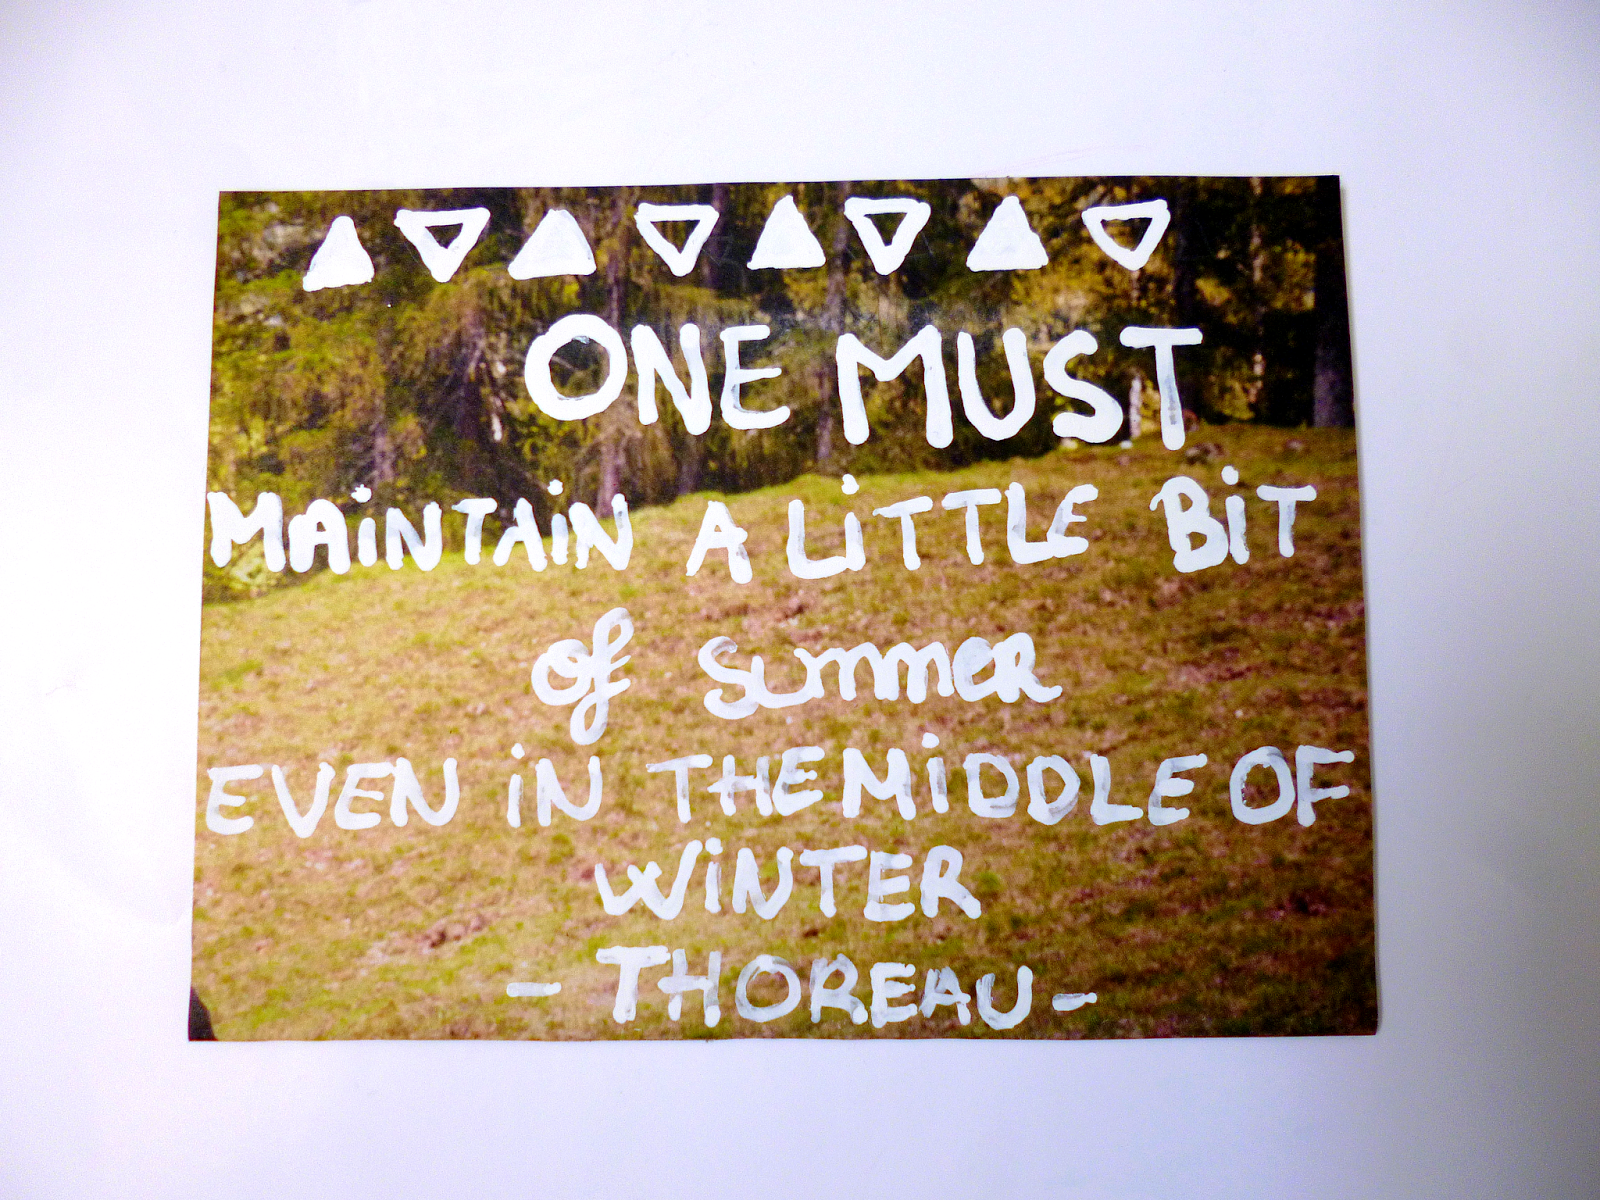 ONE MUST
MAiNTAiN A LiTTLE BiT
of summer
EVEN iN THE MiDDLE OF
WiNTER
- THOREAU -